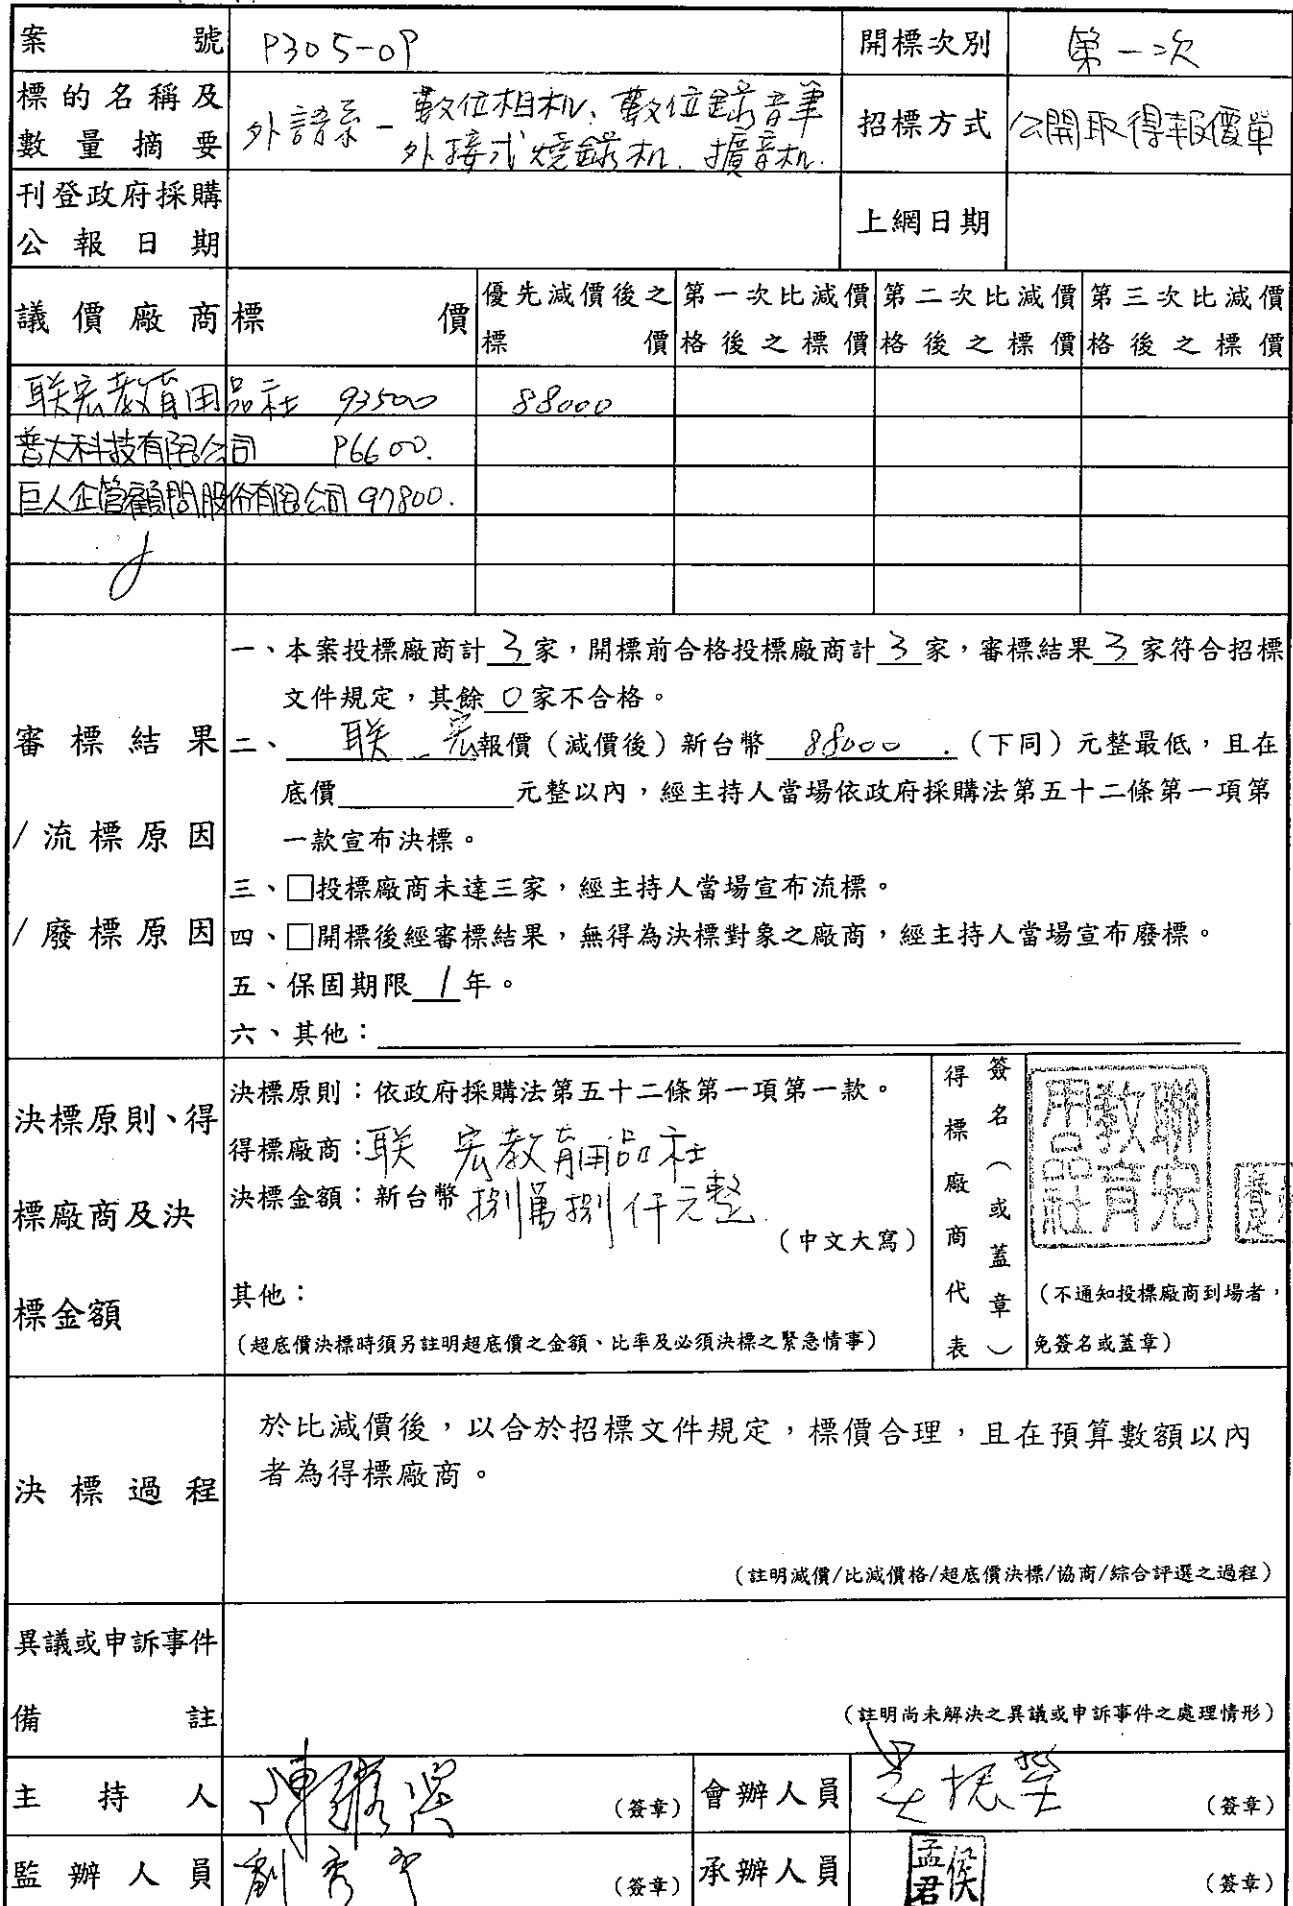 案號 P305-09 開標次別 第一次
標的名稱及數量摘要 外語系-數位相机、數位錄音筆 招標方式 公開取得報價單
外接式燒錄机、擴音机.
刊登政府採購公報日期 上網日期
議價廠商 標價 優先減價後之標價 第一次比減價格後之標價 第二次比減價格後之標價 第三次比減價格後之標價
联宏教育用品社 93500 88000
普大科技有限公司 96600.
巨人企管顧問股份有限公司 97800.
審標結果/流標原因/廢標原因
一、本案投標廠商計3家,開標前合格投標廠商計3家,審標結果3家符合招標
文件規定,其餘0家不合格。
二、联宏報價(減價後)新台幣88000.(下同)元整最低,且在
底價 元整以內,經主持人當場依政府採購法第五十二條第一項第
一款宣布決標。
三、□投標廠商未達三家,經主持人當場宣布流標。
四、□開標後經審標結果,無得為決標對象之廠商,經主持人當場宣布廢標。
五、保固期限1年。
六、其他:
決標原則、得標廠商及決標金額
決標原則:依政府採購法第五十二條第一項第一款。
得標廠商:联宏教育用品社
決標金額:新台幣捌萬捌仟元整.
(中文大寫)
其他:
(超底價決標時須另註明超底價之金額、比率及必須決標之緊急情事)
得標廠商代表
簽名(或蓋章)
聯宏教育用品社
(不通知投標廠商到場者,
免簽名或蓋章)
決標過程
於比減價後,以合於招標文件規定,標價合理,且在預算數額以內
者為得標廠商。
(註明減價/比減價格/超底價決標/協商/綜合評選之過程)
異議或申訴事件
備註
(註明尚未解決之異議或申訴事件之處理情形)
主持人 (簽章) 會辦人員 (簽章)
監辦人員 (簽章) 承辦人員 侯孟君 (簽章)